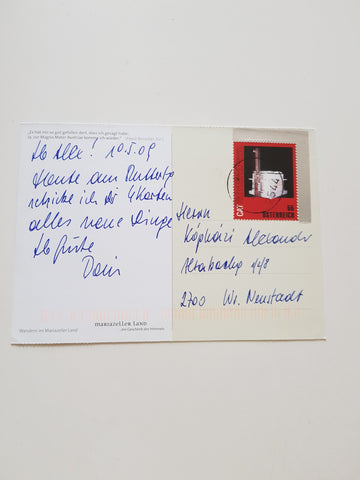 „Es hat mir so gut gefallen dort, dass ich gesagt habe:
Ja, zur Magna Mater Austriae komme ich wieder."
Lb Alex! 10.5.09
Heute am Muttertg
schicke ich dir 4 Karten
alles neue Dinge
Lb Grüße
Wandern im Mariazeller Land
mariazeller land
...ein Geschenk des Himmels
CAT
55
ÖSTERREICH
Herrn
Alexander
2700 Wr. Neustadt